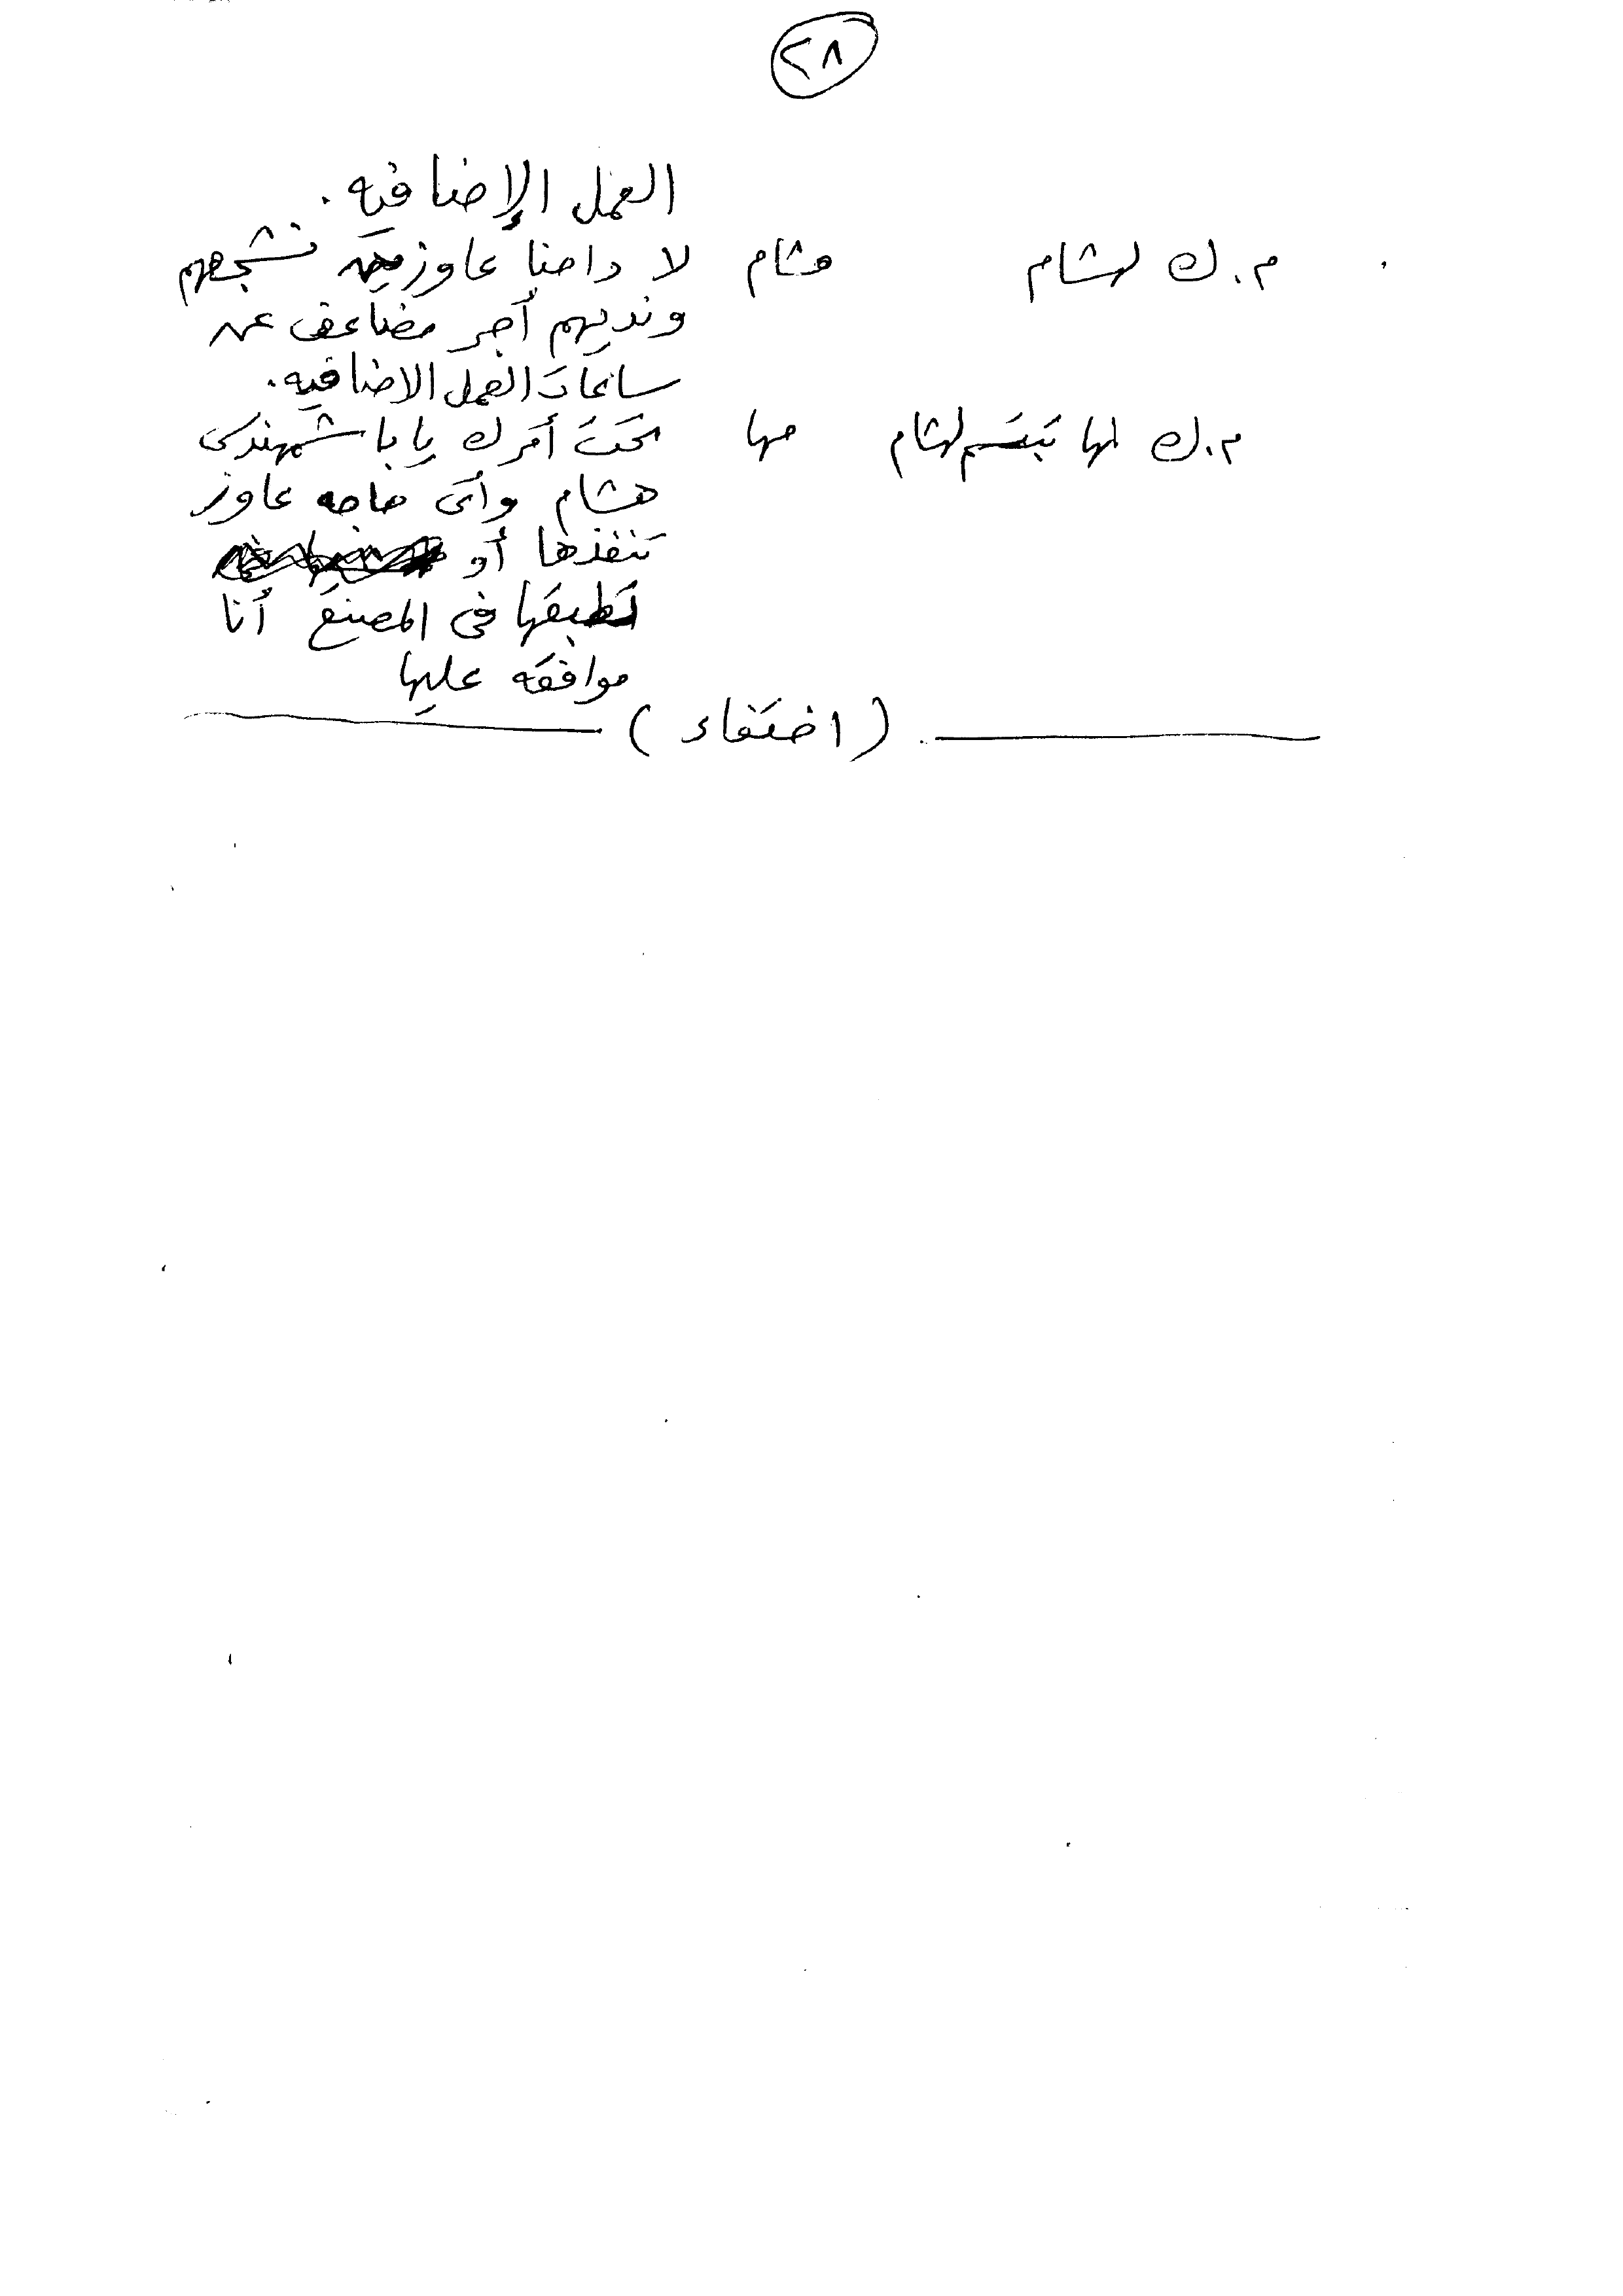 ٢٨
العمل الإضافيه.
م.ك لهشام هشام لا داحنا عاوزين نشجعهم
ونديهم أجر مضاعف عن
ساعات العمل الاضافيه.
م.ك لمها تبتسم لهشام مها تحت أمرك يا باشمهندس
هشام وأى حاجه عاوز
تنفذها أو
تطبقها فى المصنع أنا
موافقه عليها
(اختفاء)